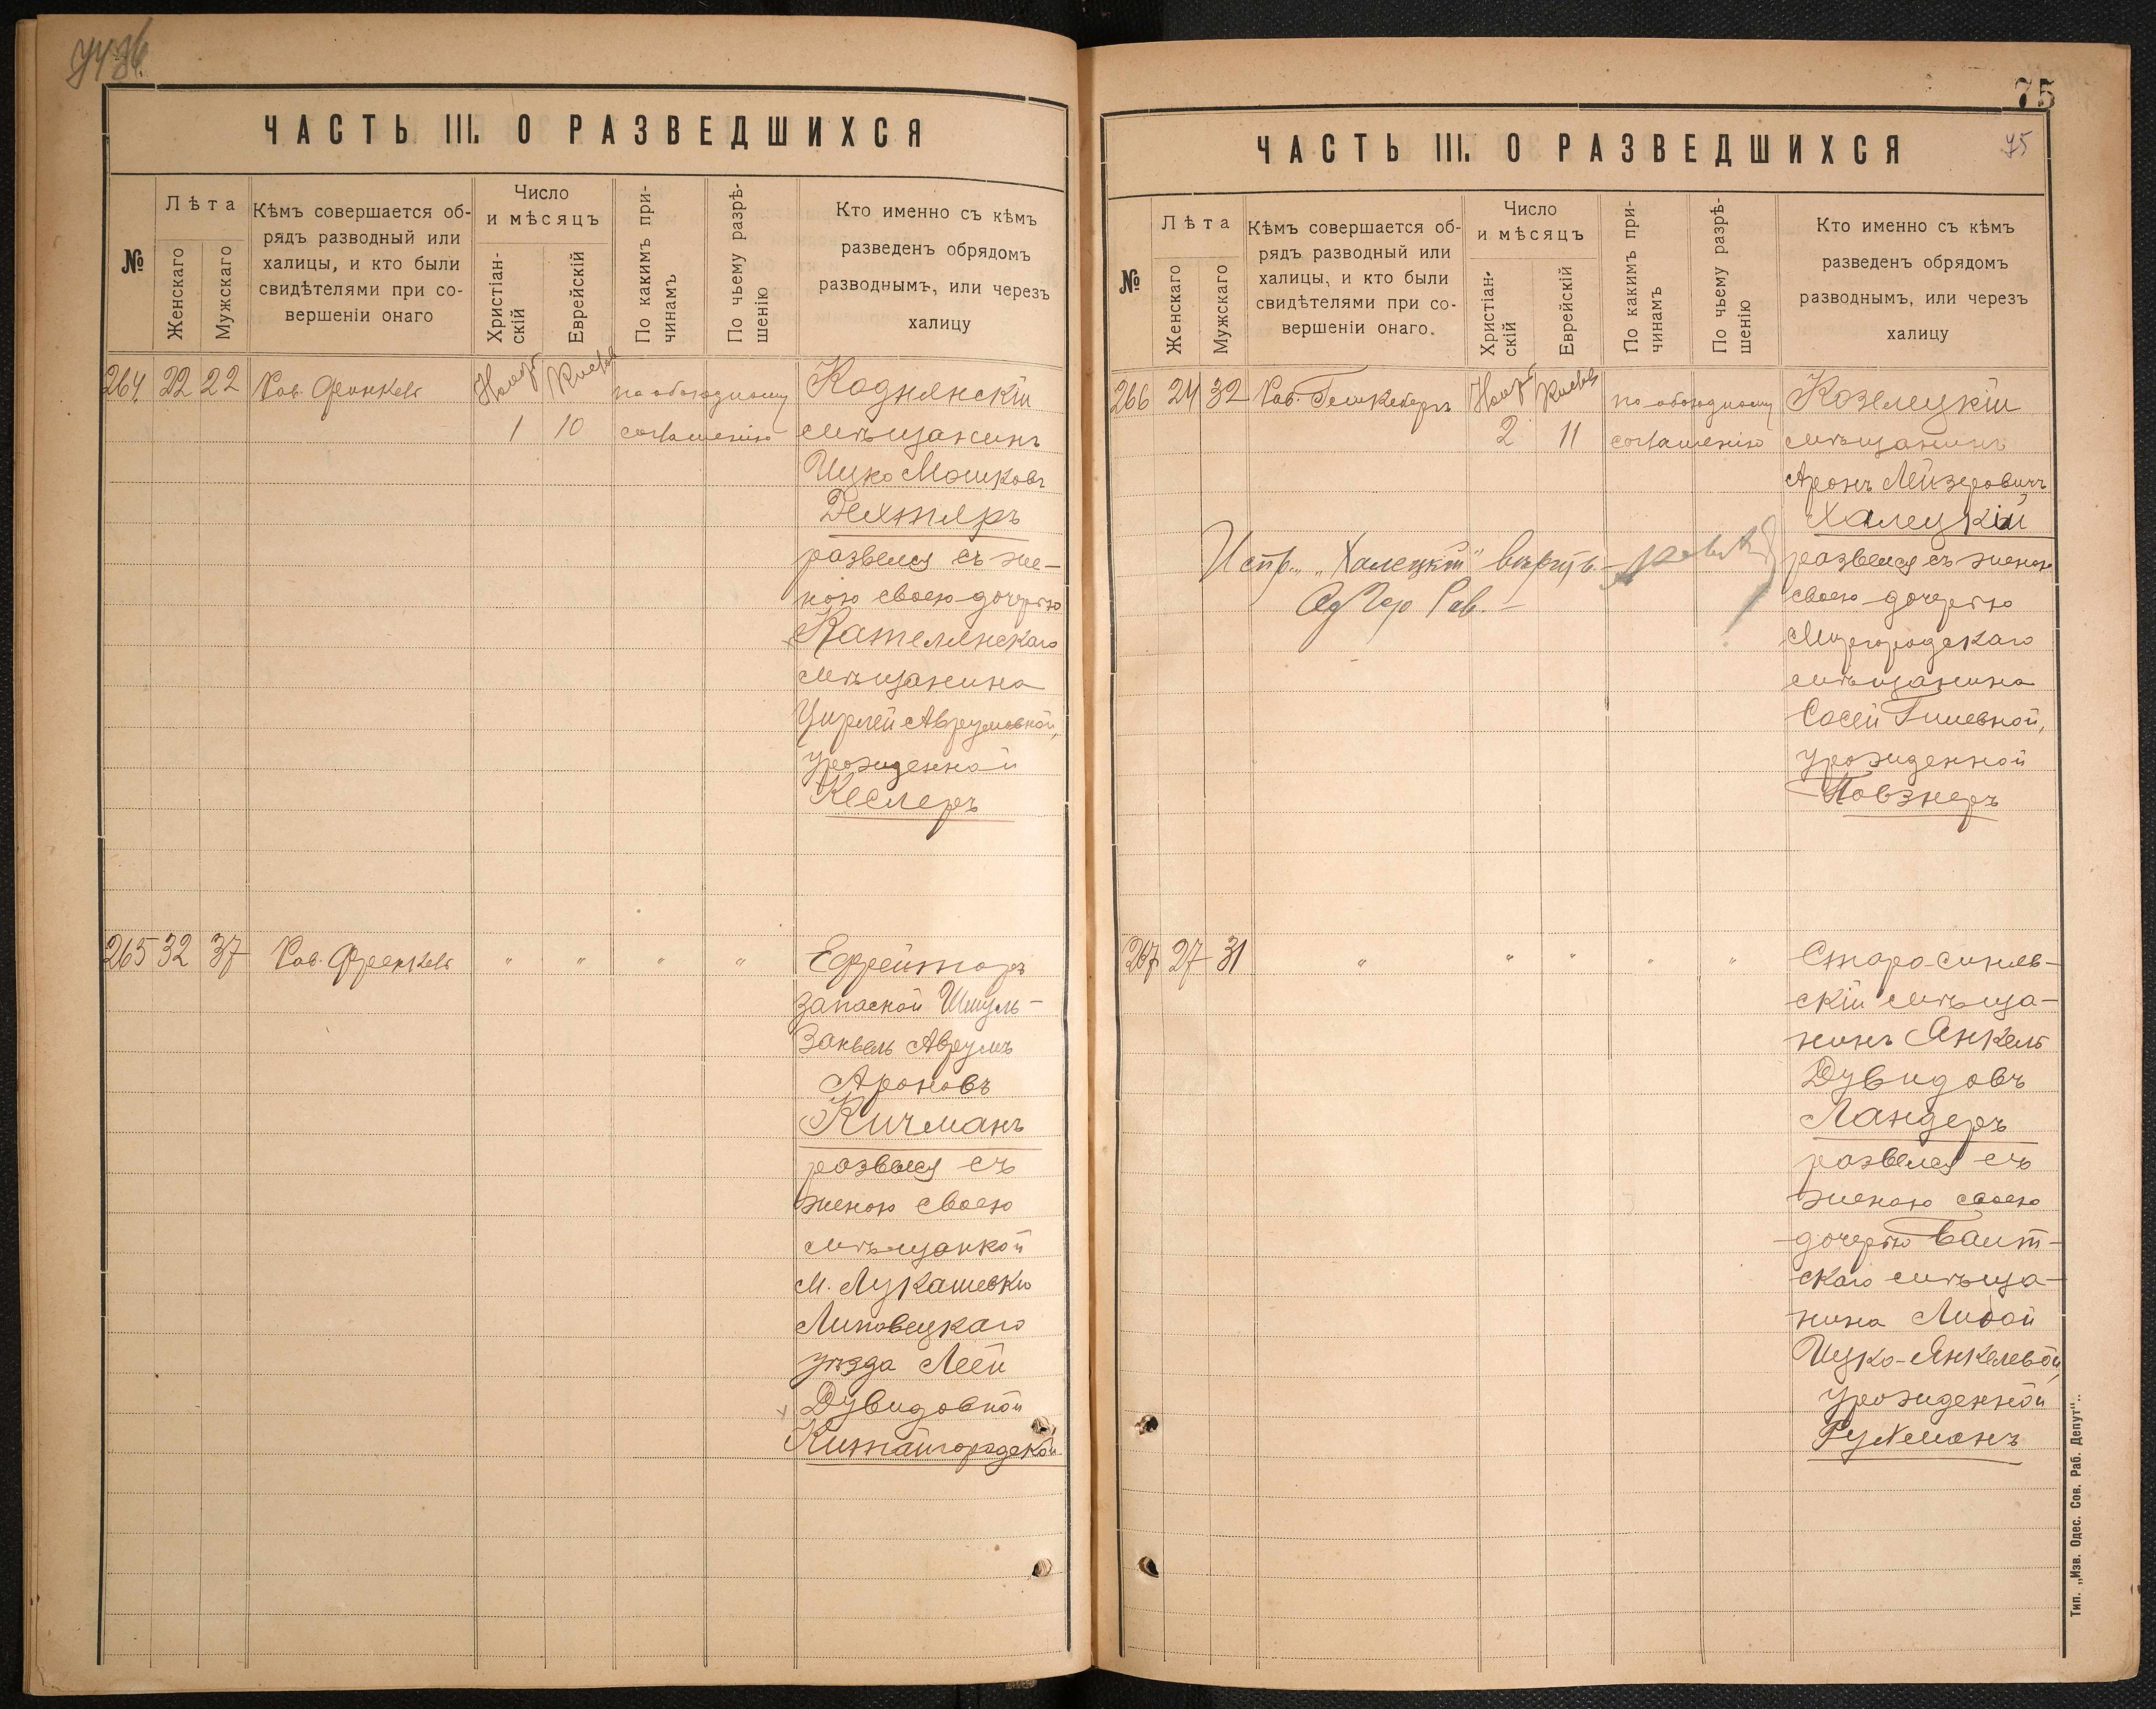 ЧАСТЬ III. О РАЗВЕДШИХСЯ
№
Лѣта
Женскаго
Мужскаго
Кѣмъ совершается об-
рядъ разводный или
халицы, и кто были
свидѣтелями при со-
вершеніи онаго
Число
и мѣсяцъ
Христіан-
скій
Еврейскій
По какимъ при-
чинамъ
По чьему разрѣ-
шенію
Кто именно съ кѣмъ
разведенъ обрядомъ
разводнымъ, или черезъ
халицу
264 22 22 Рав. Френкель Нояб. Кислев по обоюдному Коднянскій
1 10 соглашенію мѣщанинъ
Ицко Мошковъ
Дехтяръ
развелся съ же-
ною своею дочерью
Кателянскаго
мѣщанина
Цирлей Аврумовной,
урожденной
Кеслеръ
265 32 37 Рав. Френкель " " " " Ефрейторъ
запасной Шмуль-
Занвель Аврумъ
Ароновъ
Кичманъ
развелся съ
женою своею
мѣщанкой
м. Лукашевки
Липовецкаго
уѣзда Леей
Дувидовной
Китайгородской
75
ЧАСТЬ III. О РАЗВЕДШИХСЯ
75
№
Лѣта
Женскаго
Мужскаго
Кѣмъ совершается об-
рядъ разводный или
халицы, и кто были
свидѣтелями при со-
вершеніи онаго.
Число
и мѣсяцъ
Христіан-
скій
Еврейскій
По какимъ при-
чинамъ
По чьему разрѣ-
шенію
Кто именно съ кѣмъ
разведенъ обрядомъ
разводнымъ, или черезъ
халицу
266 24 32 Рав. Нояб. Кислев по обоюдному Козелецкій
2 11 соглашенію мѣщанинъ
Аронъ Лейзеровичъ
Халецкій
Испр. „Халецкій" вѣрить
развелся съ женою
Рав.
своею дочерью
Миргородскаго
мѣщанина
Сосей Гилевной,
урожденной
Повзнеръ
267 27 31 " " " " " Старо-синяв-
скій мѣща-
нинъ Янкель
Дувидовъ
Ландеръ
развелся съ
женою своею
дочерью Балт-
скаго мѣща-
нина Либой
Ицко-Янкелевой,
урожденной
Рухманъ
Тип. „Изв. Одес. Сов. Раб. Депут".